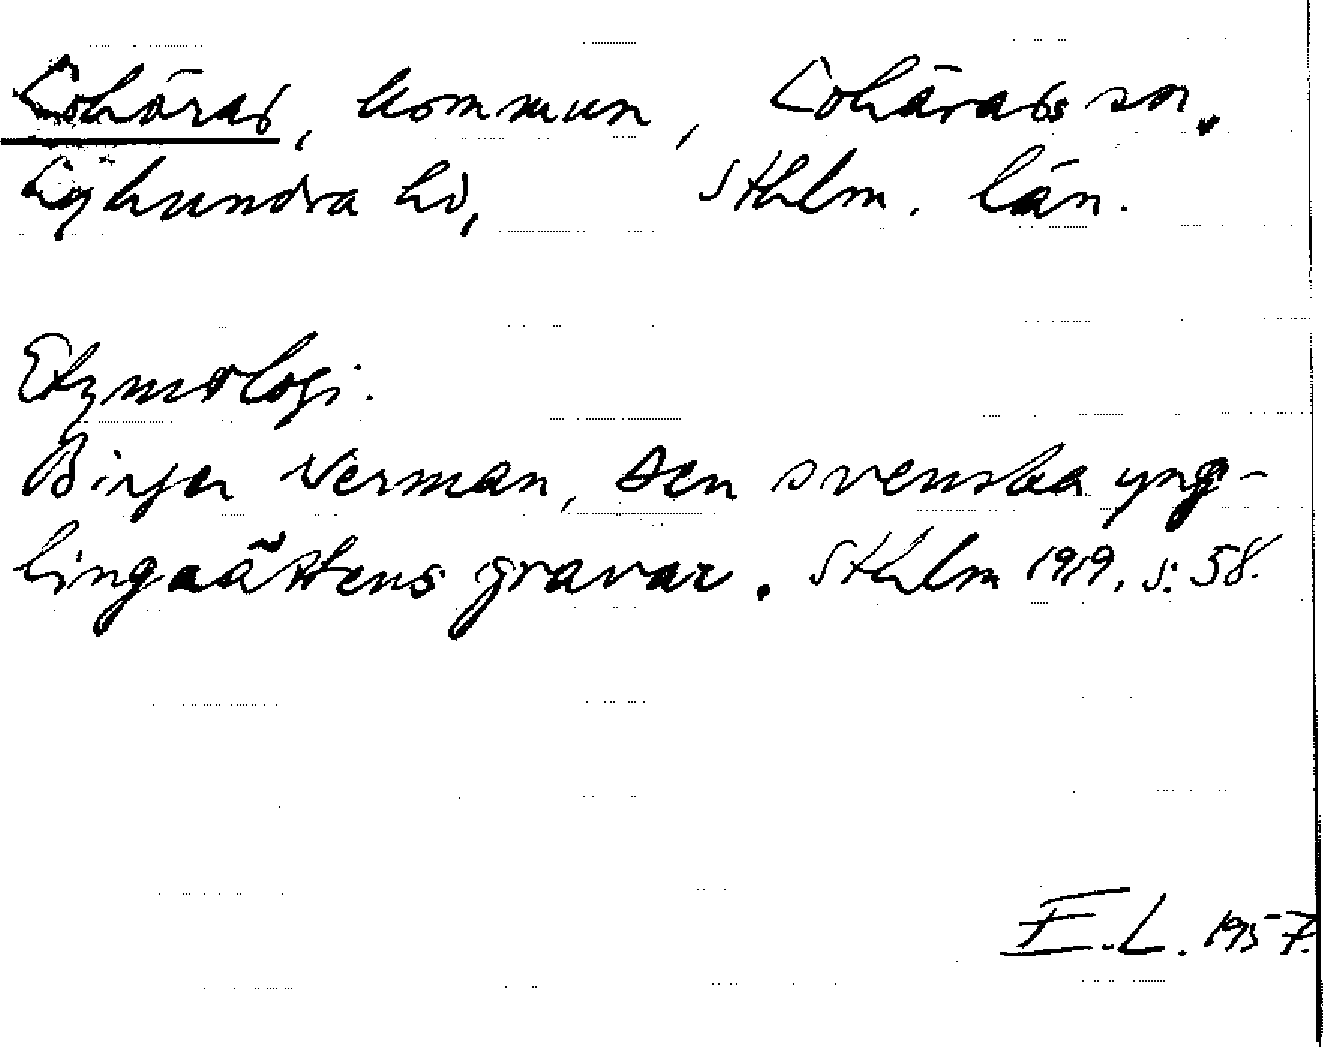 Lohärad, kommun, Lohärads sn.
Lyhundra hd, Sthlm. län.
Etymologi.
Birger Nerman, Den svenska yng-
lingaättens gravar. Sthlm 1919. s: 58.
E.L. 1957.